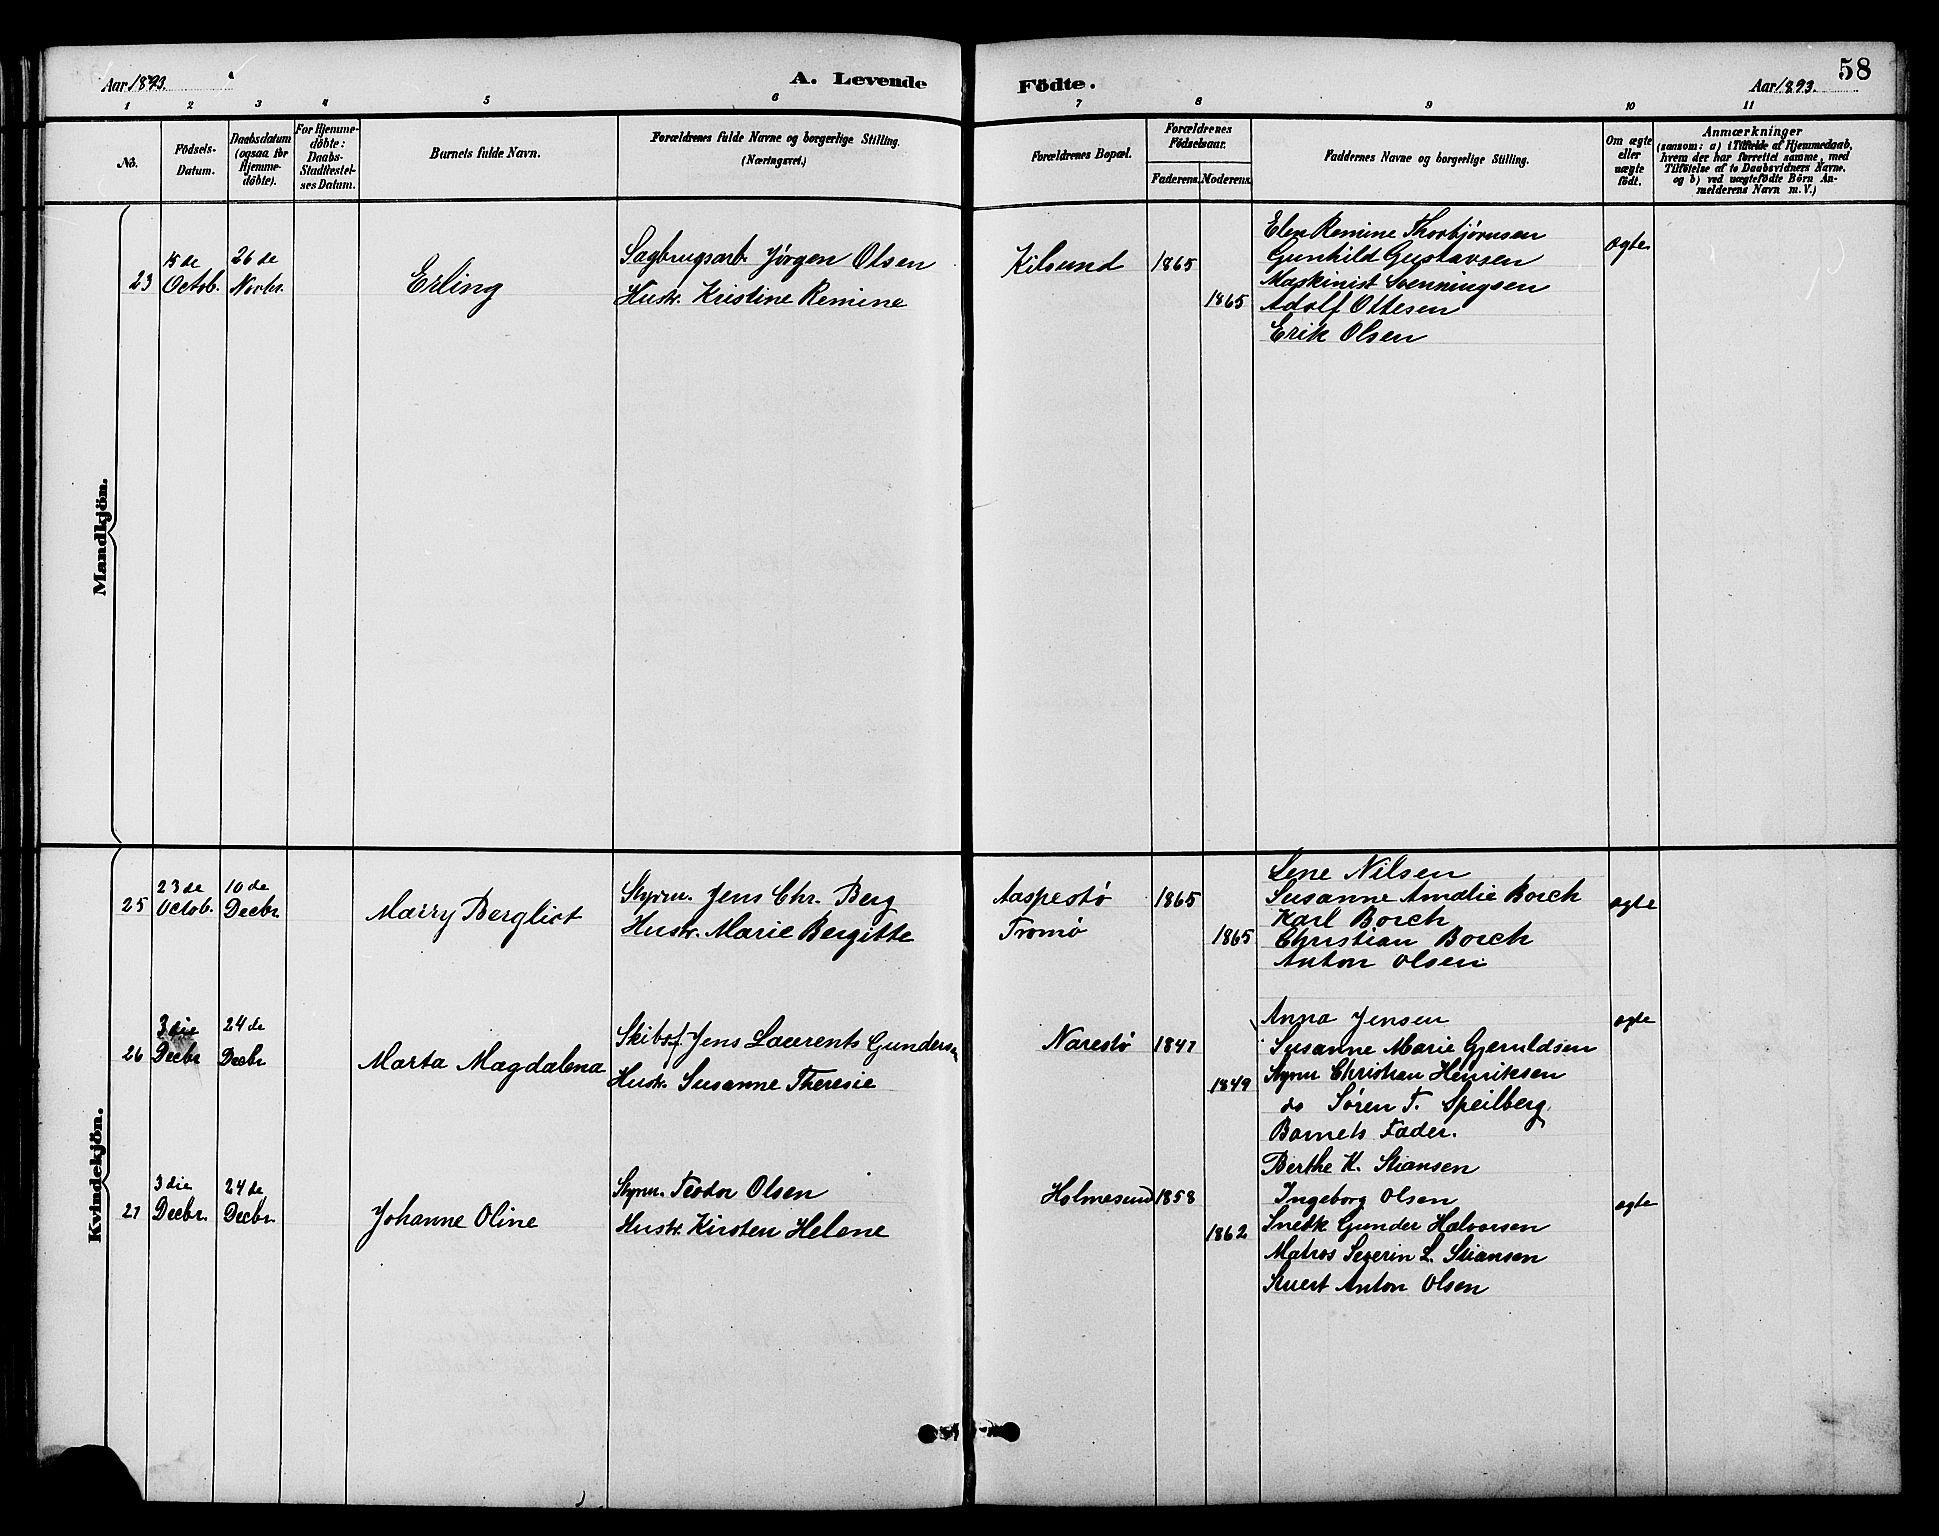 Aar 1893.
A. Levende
Födte.
Aar 1893.
58
1 2 3 4 5 6 7 8 9 10 11
No.
Födsels-
Datum.
Daabsdatum
(ogsaa for
Hjemme-
döbte).
For Hjemme-
döbte:
Daabs-
Stadfestel-
ses Datum.
Barnets fulde Navn.
Forældrenes fulde Navne og borgerlige Stilling.
(Næringsvei.)
Forældrenes Bopæl.
Forældrenes
Födselsaar.
Faderens.
Moderens.
Faddernes Navne og borgerlige Stilling.
Om ægte
eller
uægte
födt.
Anmærkninger
(saasom: a) i Tilfælde af Hjemmedaab,
hvem der har forrettet samme, med
Tilföielse af to Daabsvidners Navne,
og b) ved uægtefödte Börn An-
melderens Navn m. V.)
Mandkjön.
23
15de
Octob.
26de
Novbr.
Erling
Sagbrugsarb. Jørgen Olsen
Hustr. Kristine Remine
Kilsund
1865
1865
Elen Remine Thorbjørnsen
Gunhild Gustavsen
Maskinist Svenningsen
Adolf Ottesen
Erik Olsen
ægte
Kvindekjön.
25
23de
Octob.
10de
Decbr
Marry Bergliot
Styrm. Jens Chr. Berg
Hustr. Marie Bergitte
Aaspestø
Tromø
1865
1865
Lene Nilsen
Susanne Amalie Borch
Karl Borch
Christian Borch
Anton Olsen
ægte
26
3die
Decbr
24de
Decbr
Marta Magdalena
Skibsf. Jens Laurents Gundersen
Hustr. Susanne Theresie
Narestø
1847
1849
Anna Jensen
Susanne Marie Gjeruldsen
Styrm Christian Henriksen
do Søren T. Speilberg.
Barnets Fader.
ægte
27
3die
Decbr.
24de
Decbr.
Johanne Oline
Styrm. Teodor Olsen
Hustr. Kirsten Helene
Holmesund
1858
1862
Berthe K. Stiansen
Ingeborg Olsen
Snedk Gunder Halvorsen
Matros Severin L. Stiansen
Stuert Anton Olsen
ægte